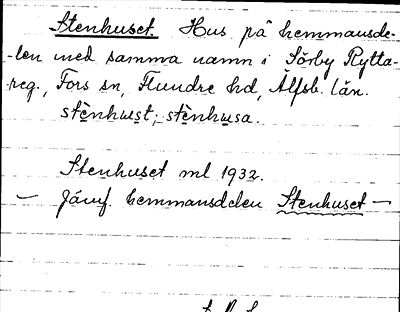 Stenhuset. Hus på hemmansde-
-len med samma namn i Sörby Rytta-
reg., Fors sn, Flundre hd, Älfsb. län.
stènhust; stènhusa.
Stenhuset ml 1932.
— Jämf. hemmansdelen Stenhuset —